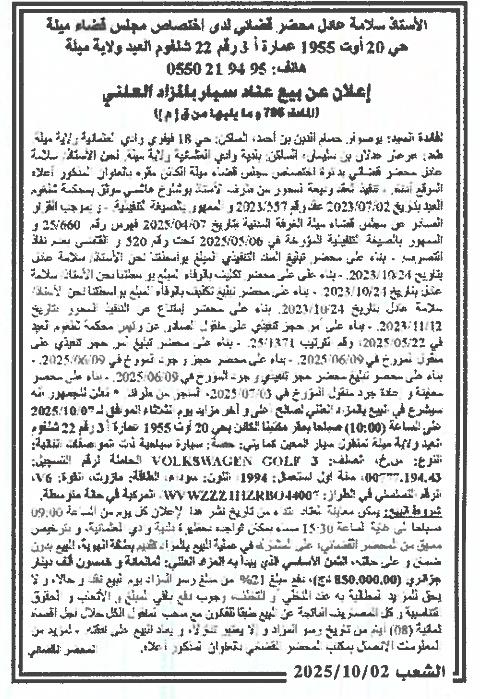 الأستاذ سلامة عادل محضر قضائي لدى اختصاص مجلس قضاء ميلة
حي 20 أوت 1955 عمارة أ 3 رقم 22 شلغوم العيد ولاية ميلة
هاتف: 95 94 21 0550
إعلان عن بيع عتاد سيار بالمزاد العلني
(المادة 706 وما يليها من ق إ م إ)
لفائدة السيد: بوصوار حسام الدين بن أحمد، الساكن: حي 18 فيفري وادي العثمانية ولاية ميلة
ضد: عدلان بن سليمان، الساكن بلدية وادي العثمانية ولاية ميلة. نحن الأستاذ سلامة
عادل محضر قضائي بدائرة اختصاص مجلس قضاء ميلة الكائن مقره بالعنوان المذكور أعلاه
الموقع أدناه، تنفيذا لعقد وديعة المحرر من طرف الأستاذ هاشمي موثق بمحكمة شلغوم
العيد بتاريخ 2023/07/02 عقد رقم 2023/357 و الممهور بالصيغة التنفيذية. و بموجب القرار
الصادر عن مجلس قضاء ميلة الغرفة المدنية بتاريخ 2025/04/07 فهرس رقم 25/660 و
الممهور بالصيغة التنفيذية المؤرخة في 2025/05/06 تحت رقم 520 و القاضي بعدم نفاذ
التصرف. بناء على محضر تبليغ السند التنفيذي المبلغ بواسطتنا نحن الأستاذ سلامة عادل
بتاريخ 2023/10/24. بناء على محضر تكليف بالوفاء المبلغ بواسطتنا نحن الأستاذ سلامة
عادل بتاريخ 2023/10/24. بناء على محضر تبليغ تكليف بالوفاء المبلغ بواسطتنا نحن الأستاذ
سلامة عادل بتاريخ 2023/10/24. بناء على محضر إمتناع عن التنفيذ المحرر بتاريخ
2023/11/12. بناء على أمر حجز تنفيذي على منقول الصادر عن رئيس محكمة شلغوم العيد
في 2025/05/22، رقم الترتيب 25/1371. بناء على محضر تبليغ أمر حجز تنفيذي على
منقول المؤرخ في 2025/06/09. بناء على محضر حجز وجرد المؤرخ في 2025/06/09.
بناء على محضر تبليغ محضر حجز تنفيذي و جرد المؤرخ في 2025/06/09. بناء على محضر
معاينة و إعادة جرد منقول المؤرخ في 2025/07/03، المحرر من طرفنا. نعلن للجمهور أنه
سيشرع في البيع بالمزاد العلني لصالح أعلى و آخر مزايد يوم الثلاثاء الموافق لـ 2025/10/07
على الساعة (10:00) صباحا بمقر مكتبنا الكائن بحي 20 أوت 1955 عمارة أ 3 رقم 22 شلغوم
العيد ولاية ميلة لمنقول سيار المعين كما يلي: حصة: سيارة سياحية ذات المواصفات التالية:
النوع: س.خ، الصنف: VOLKSWAGEN GOLF 3 الحاملة لرقم التسجيل:
00777.194.43، سنة أول استعمال: 1994، اللون: سوداء، الطاقة: مازوت، القوة: V6،
الرقم التسلسلي في الطراز: WVWZZZ1HZRBO44007، المركبة في حالة متوسطة.
شروط البيع: يمكن معاينة العتاد ابتداء من تاريخ نشر هذا الإعلان كل يوم من الساعة 09:00
صباحا إلى غاية الساعة 15:30 مساء بمكان تواجده بحظيرة بلدية وادي العثمانية، وبترخيص
مسبق من المحضر القضائي، على المشترك في عملية البيع بالمزاد تقديم بطاقة الهوية، البيع بدون
ضمان و على حالته، الثمن الأساسي الذي يبدأ به المزاد العلني: ثمانمائة و خمسون ألف دينار
جزائري (850.000,00 دج)، دفع مبلغ 21% من مبلغ رسو المزاد يوم البيع نقدا و حالا، و لا
يحق للمزايد المطالبة به عند التخلي و التخلف، وجوب دفع باقي المبلغ و الأتعاب و الحقوق
التناسبية و كل المصاريف الناتجة عن البيع طبقا للقانون مع سحب المنقول الكل خلال أجل أقصاه
ثمانية (08) أيام من تاريخ رسو المزاد و إلا يعتبر متنازلا، و يعاد البيع على نفقته. لمزيد من
المعلومات الاتصال بمكتب المحضر القضائي بالعنوان المذكور أعلاه. المحضر القضائي
الشعب 2025/10/02